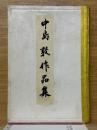 中島敦作品集